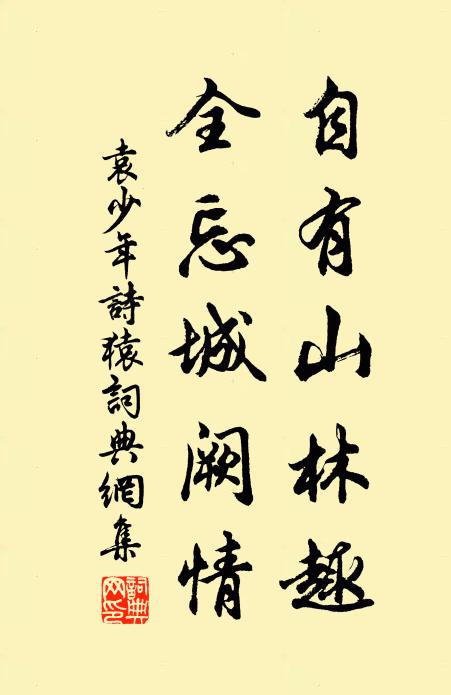 自有山林趣
全忘城闕情
袁少年詩猿詞典網集
詞典
网印